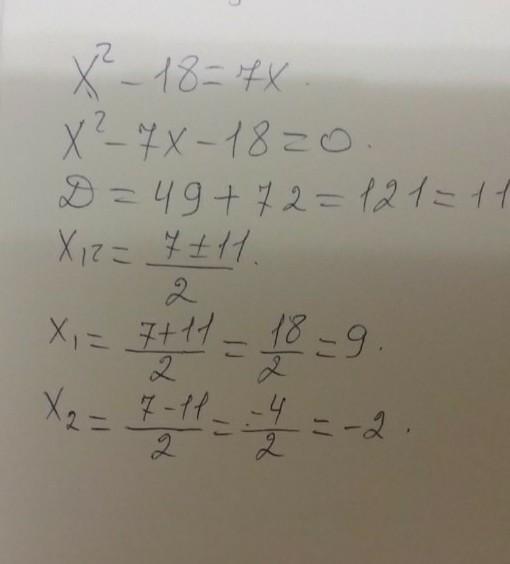 x² - 18 = 7x.
x² - 7x - 18 = 0.
D = 49 + 72 = 121 = 11
x₁₂ = (7 ± 11)/2.
x₁ = (7+11)/2 = 18/2 = 9.
x₂ = (7-11)/2 = -4/2 = -2.